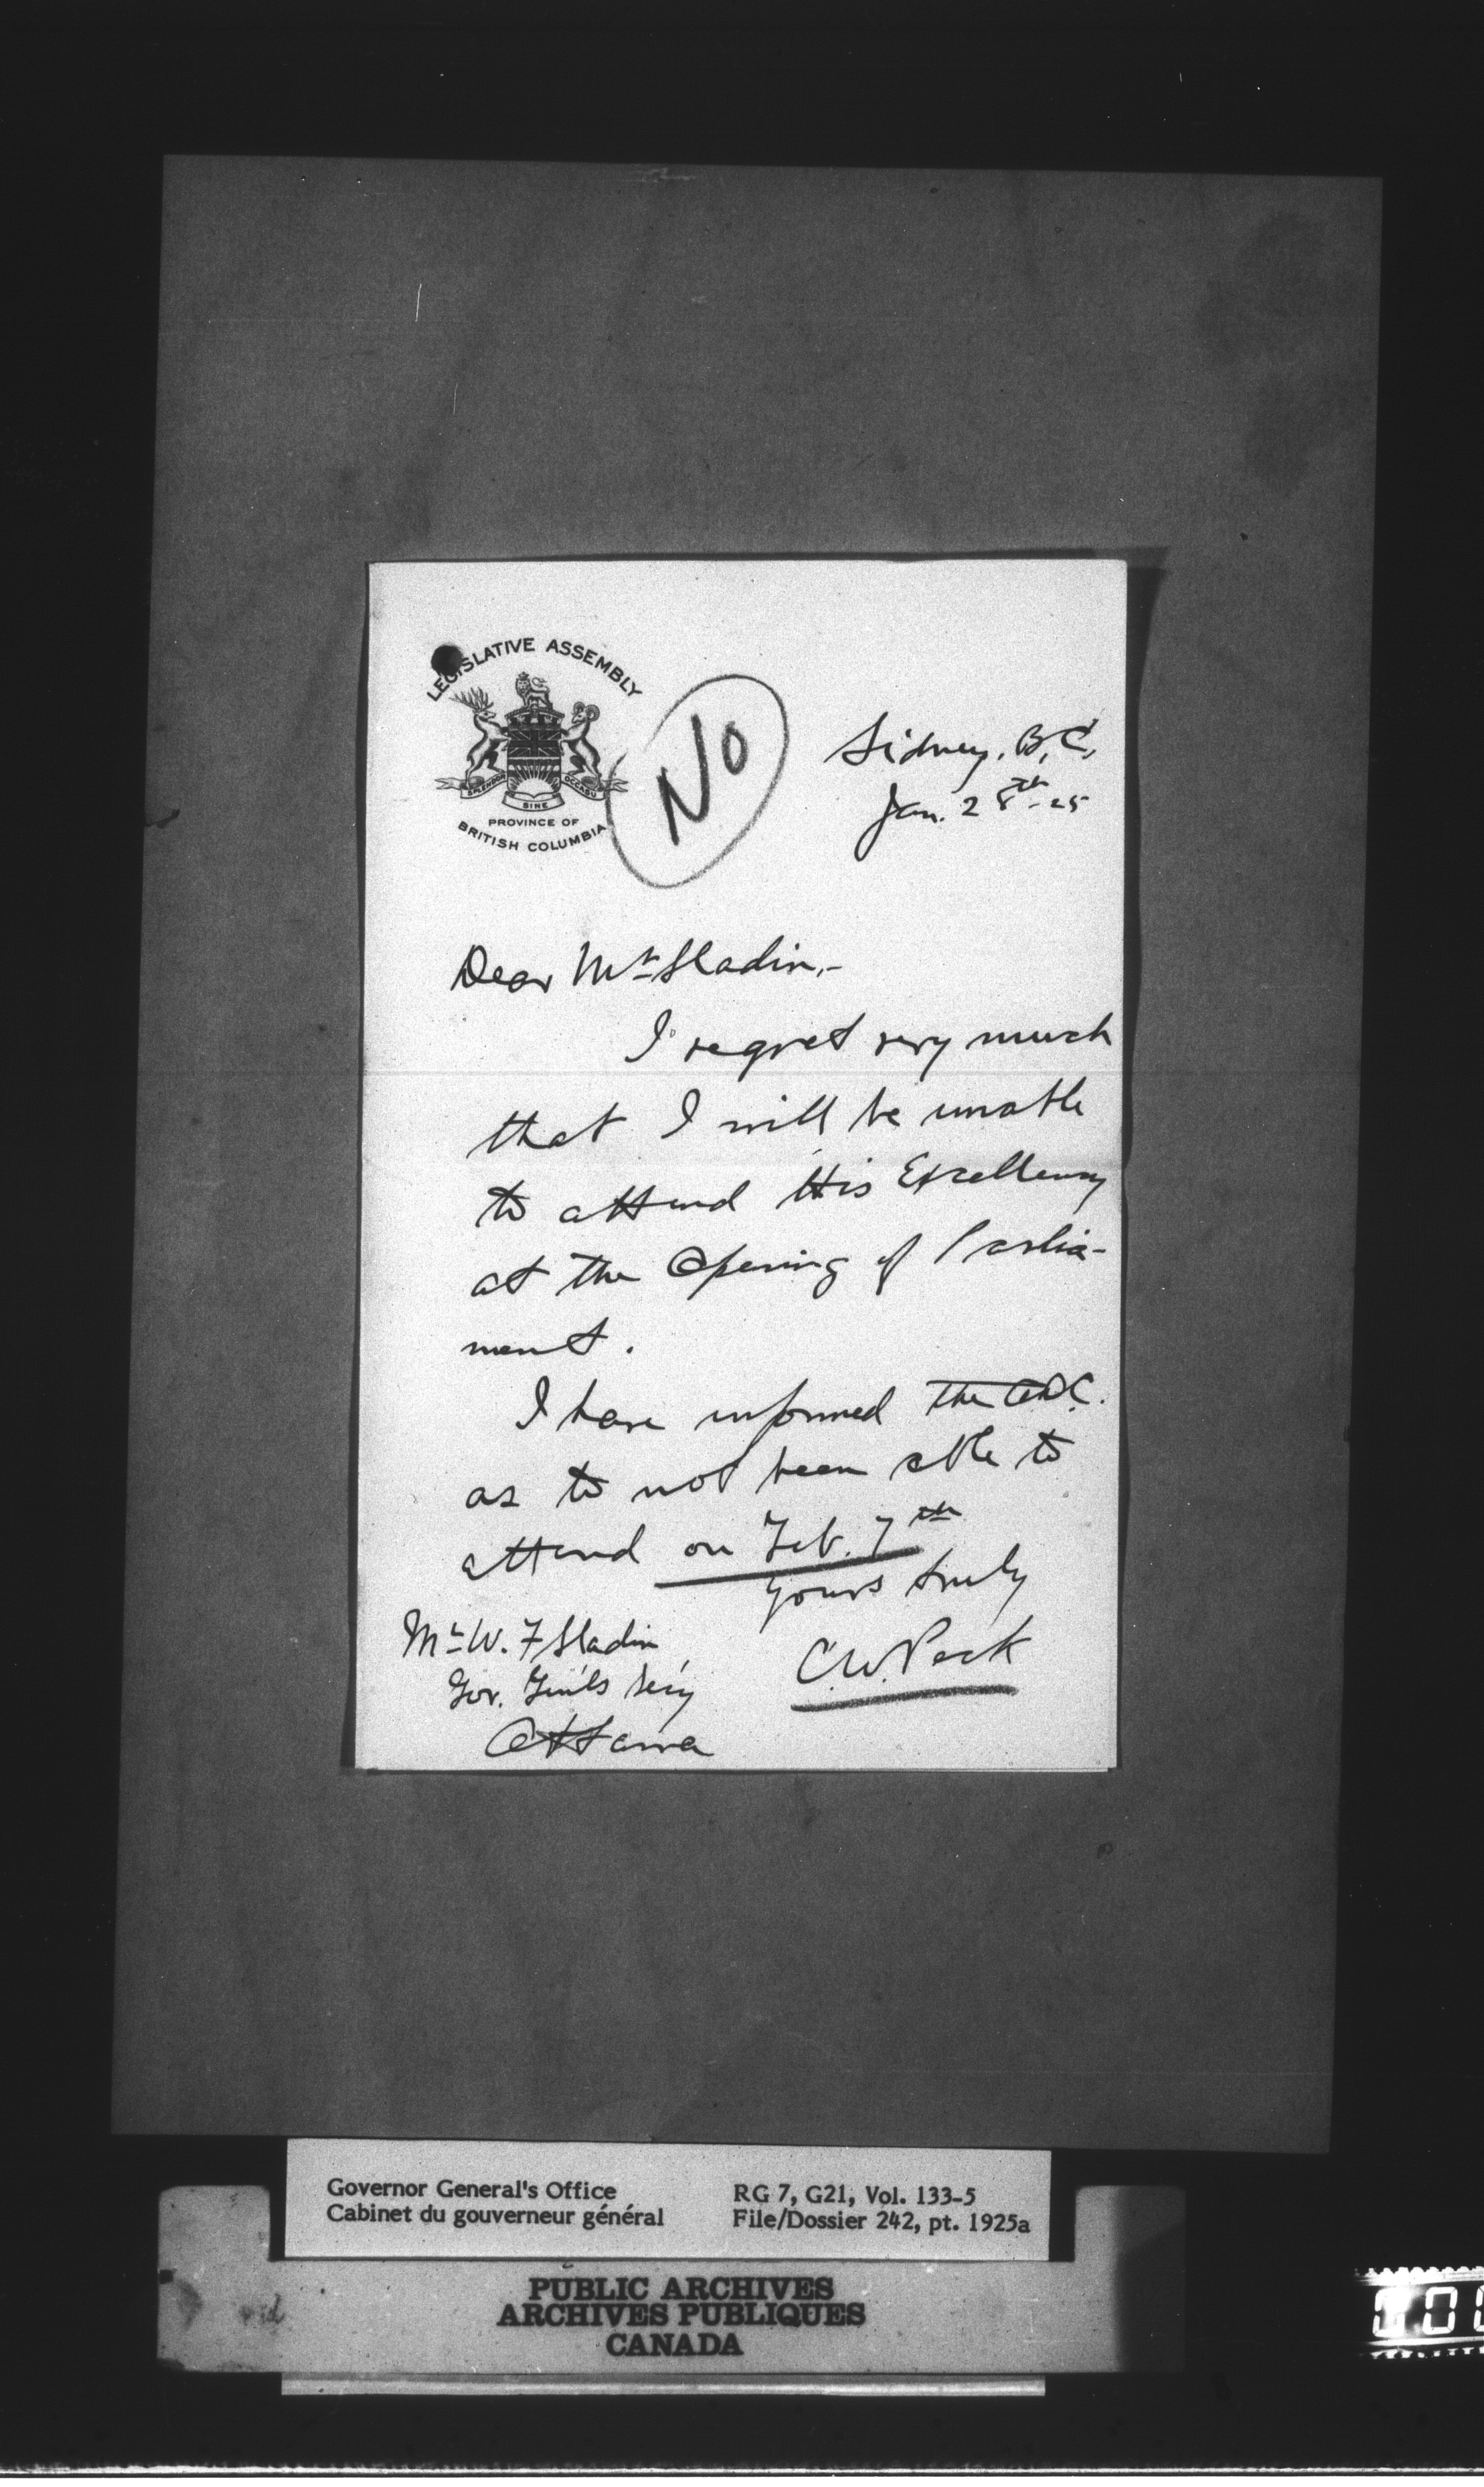 LEGISLATIVE ASSEMBLY
SPLENDOR SINE OCCASU
PROVINCE OF
BRITISH COLUMBIA
No
Sidney, B.C.
Jan. 28th - 25
Dear Mr Sladin,-
I regret very much
that I will be unable
to attend His Excellency
at the Opening of Parlia-
ment.
I have informed the A.D.C.
as to not been able to
attend on Feb. 7th
Yours truly
C.W. Peck
Mr W. F Sladin
Gov. Gen'ls Sec'y
Ottawa
Governor General's Office
Cabinet du gouverneur général
RG 7, G21, Vol. 133-5
File/Dossier 242, pt. 1925a
PUBLIC ARCHIVES
ARCHIVES PUBLIQUES
CANADA